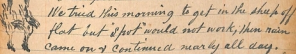 We tried this morning to get in the sheep off
flat but Spot would not work, then rain
came on & continued nearly all day.